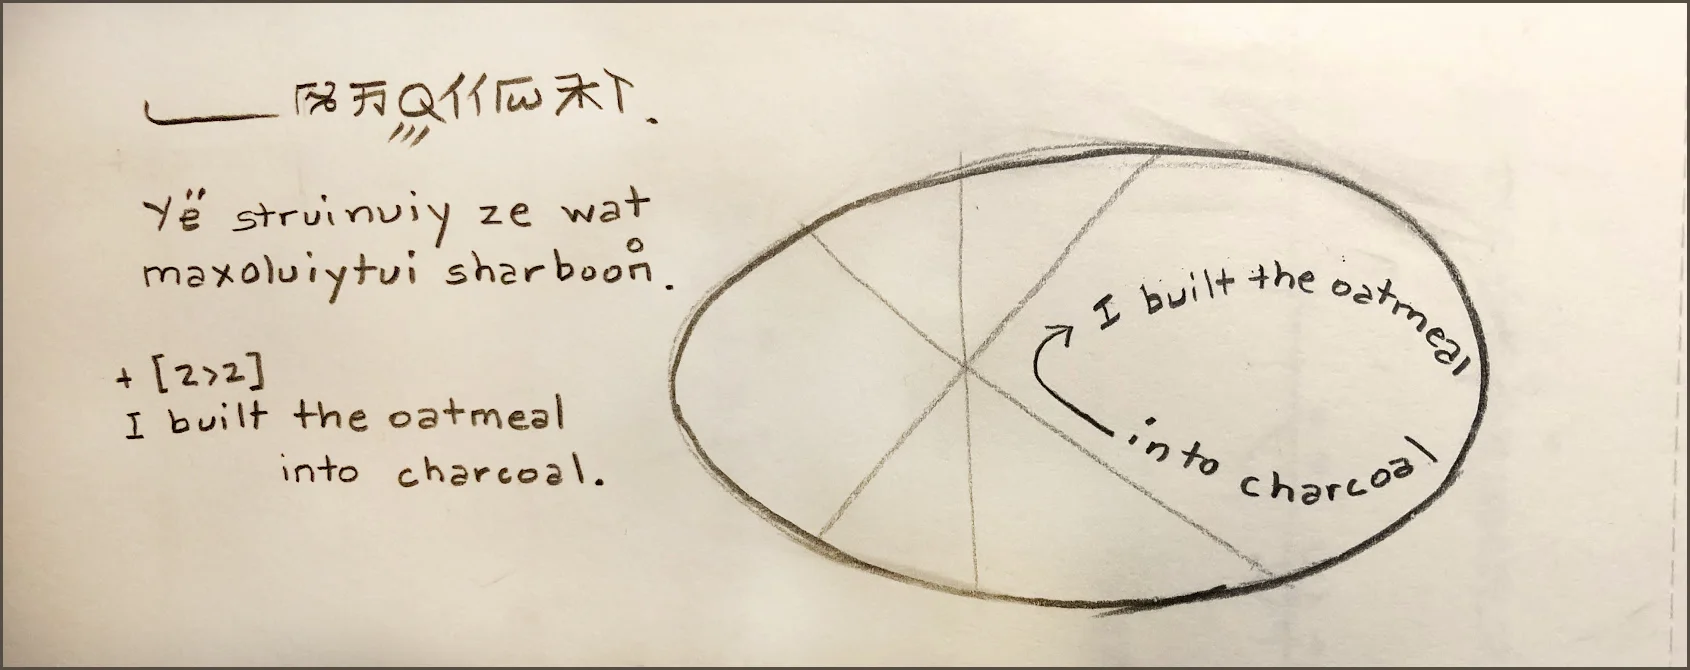 Yë struinuiy ze wat
maxoluiytui sharboon̊.
+ [2>2]
I built the oatmeal
into charcoal.
I built the oatmeal
into charcoal